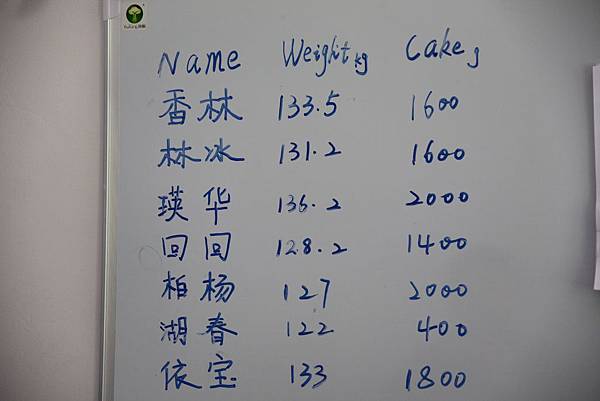 Name Weight kg Cake g
香林 133.5 1600
林冰 131.2 1600
瑛华 136.2 2000
回回 128.2 1400
柏杨 127 2000
湖春 122 400
依宝 133 1800